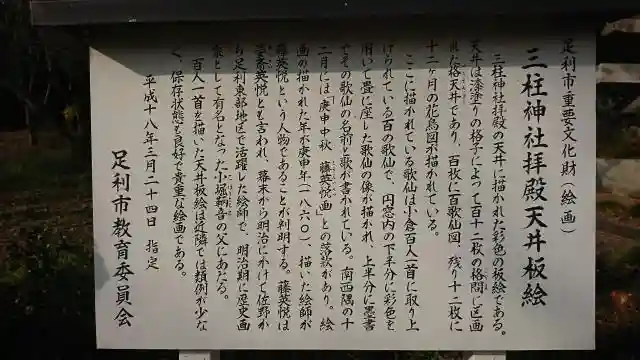 足利市重要文化財（絵画）
三柱神社拝殿天井板絵
三柱神社拝殿の天井に描かれた彩色の板絵である。
天井は漆塗りの格子によって百十二枚の格間に区画
された格天井であり、百枚に百歌仙図、残り十二枚に
十二ヶ月の花鳥図が描かれている。
ここに描かれている歌仙は小倉百人一首に取り上
げられている百の歌仙で、円窓内の下半分に彩色を
用いて畳に座した歌仙の像が描かれ、上半分に墨書
でその歌仙の名前と歌が書かれている。南西隅の十
二月には「庚申中秋 藤英悦画」との落款があり、絵
画の描かれた年が庚申年（一八六〇）、描いた絵師が
藤英悦という人物であることが判明する。藤英悦は
英悦とも言われ、幕末から明治にかけて佐野か
ら足利東部地区で活躍した絵師で、明治期に歴史画
家として有名となった小堀鞆音の父にあたる。
百人一首を描いた天井板絵は近隣では類例が少な
く、保存状態も良好で貴重な絵画である。
平成十八年三月二十四日 指定
足利市教育委員会